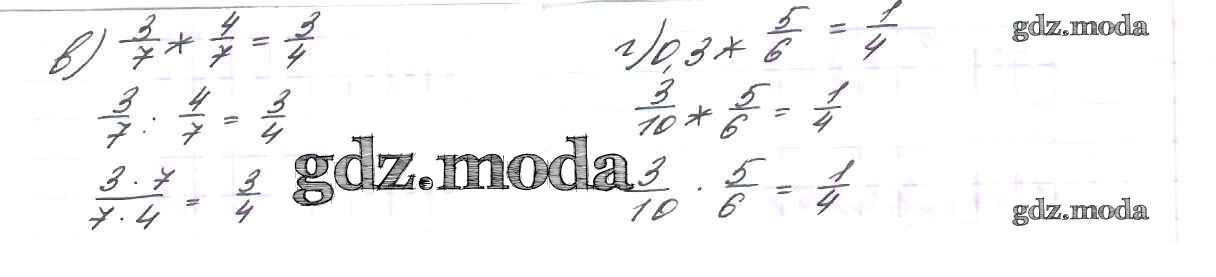 в) 3/7 * 4/7 = 3/4
3/7 : 4/7 = 3/4
3 · 7 / 7 · 4 = 3/4
г) 0,3 * 5/6 = 1/4
3/10 * 5/6 = 1/4
3/10 · 5/6 = 1/4
gdz.moda
gdz.moda
gdz.moda